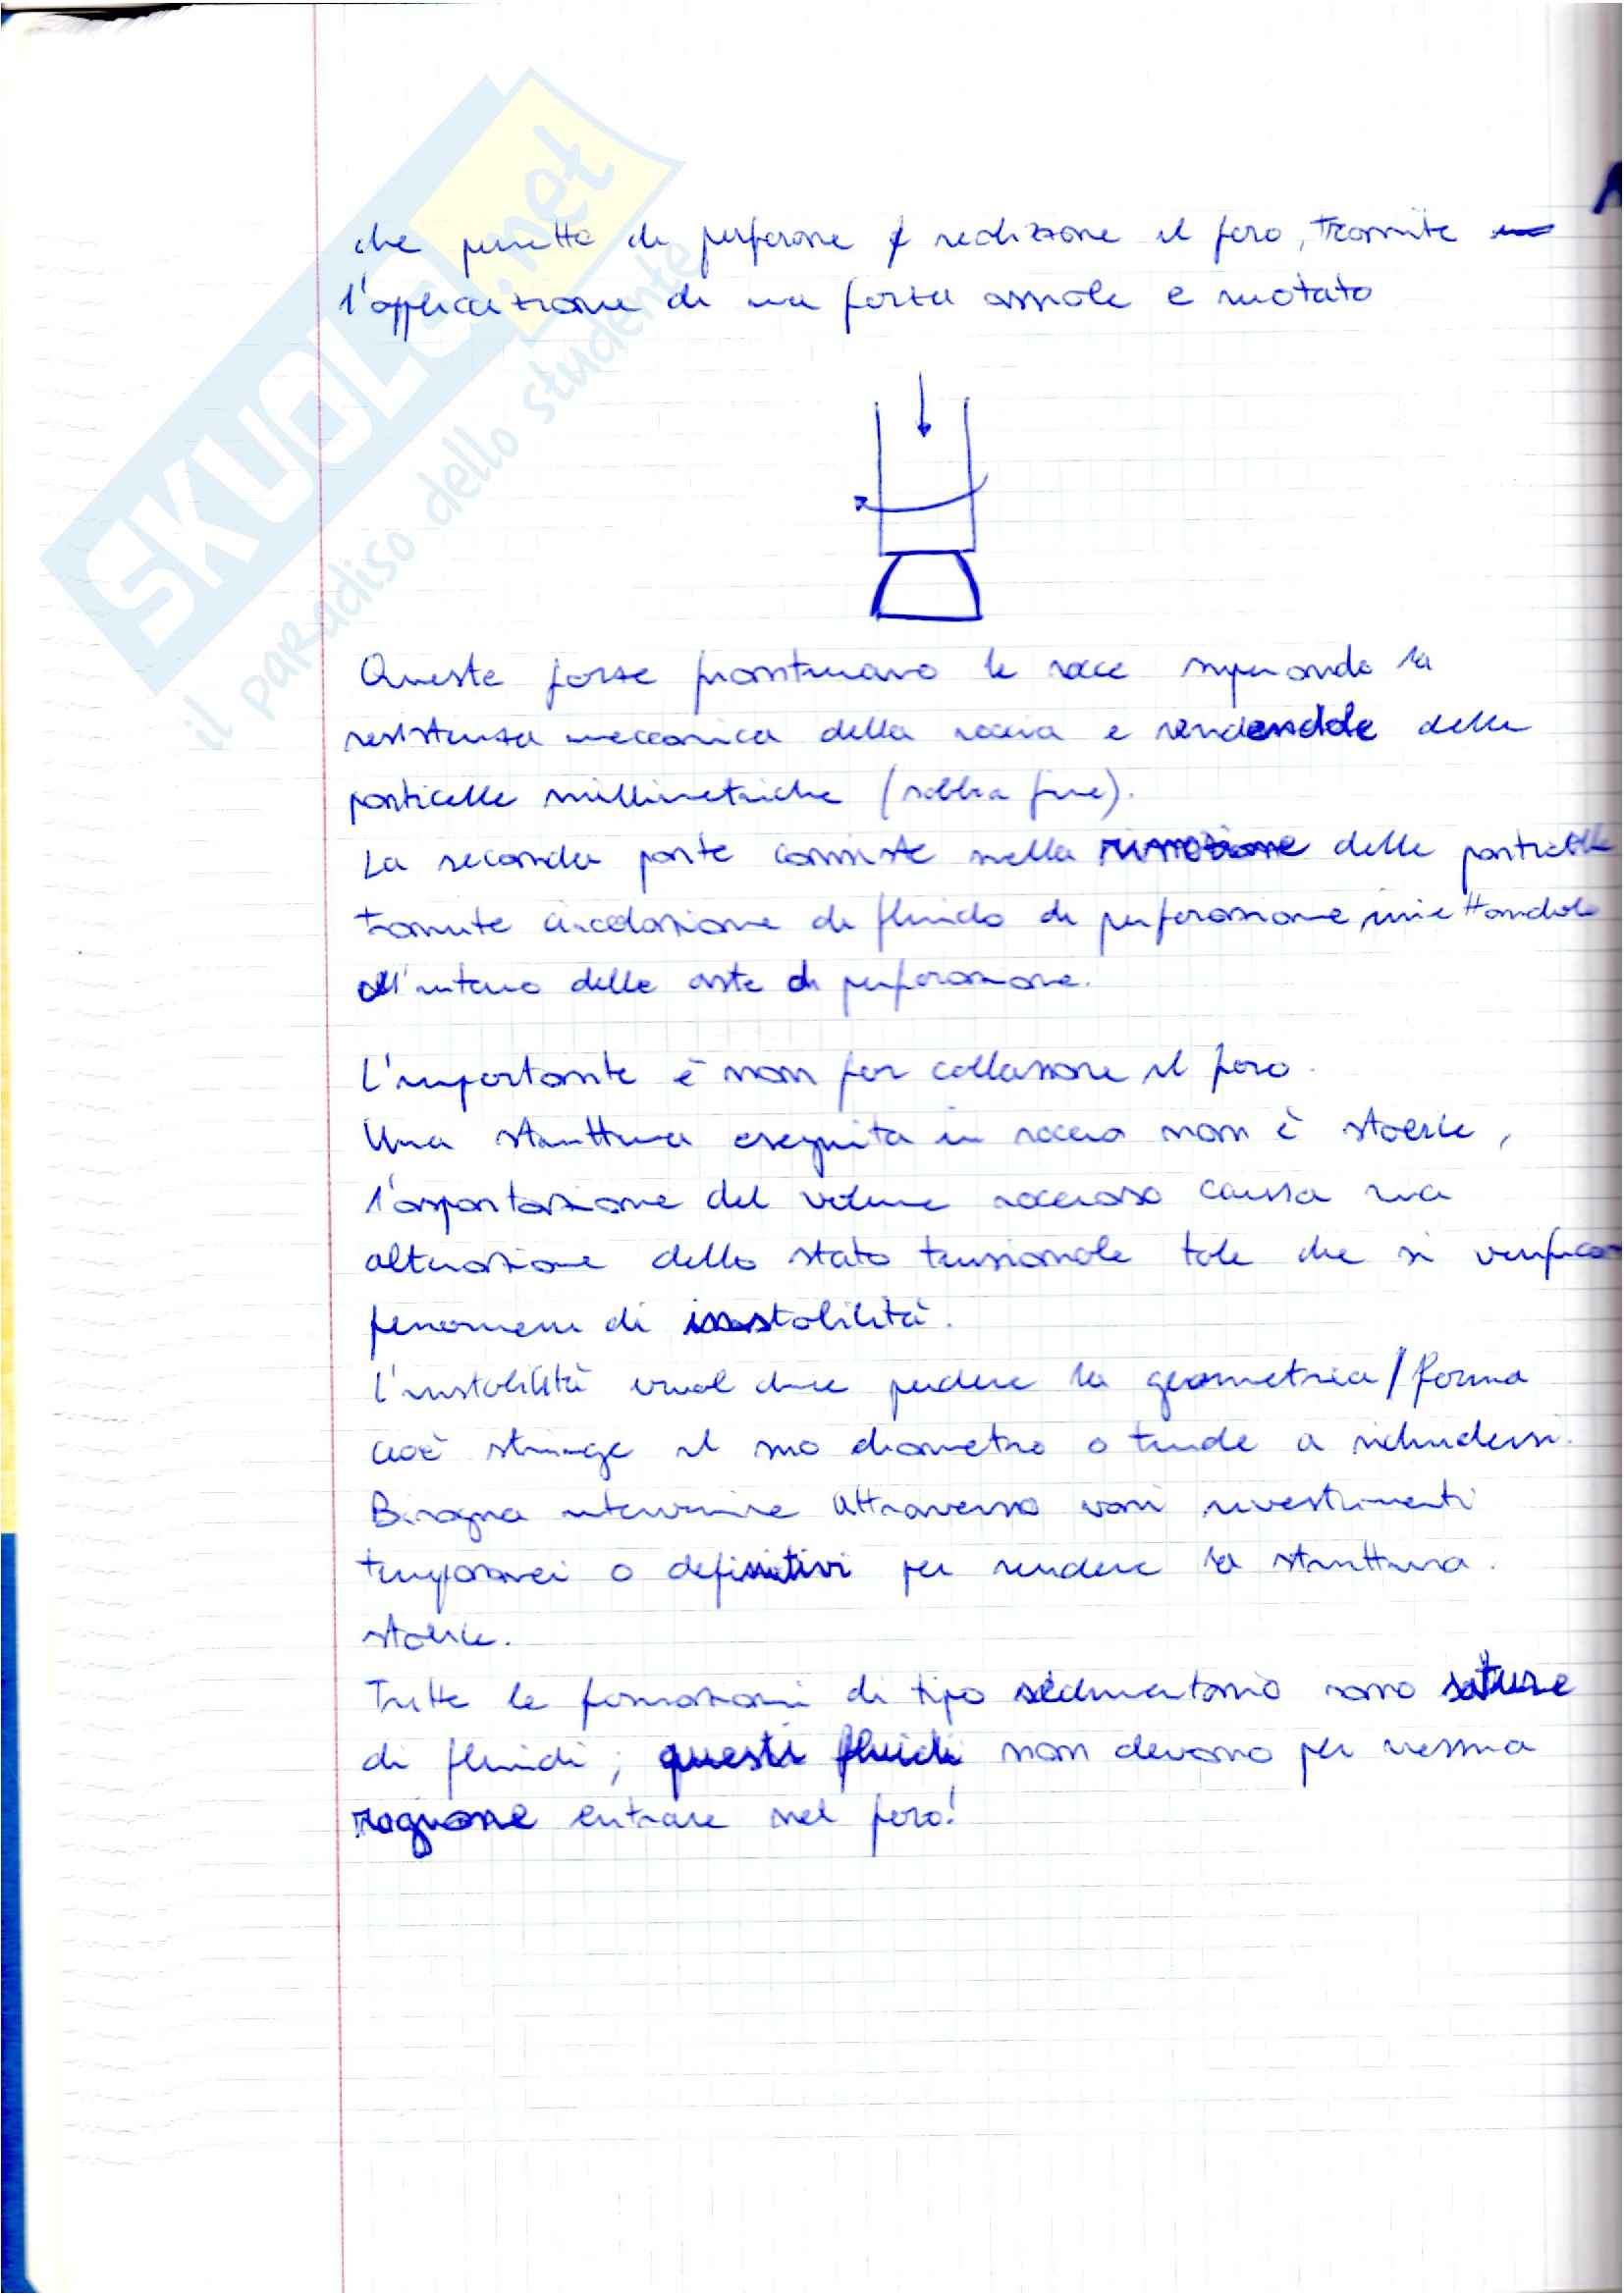 SKUOLA.net
il paradiso dello studente
che permette di perforare / realizzare il foro, tramite
l'applicazione di una forza assiale e ruotata
Queste forze frantumano le rocce superando la
resistenza meccanica della roccia e rendendole delle
particelle millimetriche (sabbia fine).
La seconda parte consiste nella rimozione delle particelle
tramite circolazione di fluido di perforazione, iniettandolo
all'interno delle aste di perforazione.
L'importante è non far collassare il foro.
Una struttura eseguita in roccia non è stabile,
l'asportazione del volume roccioso causa una
alterazione dello stato tensionale tale che si verificano
fenomeni di instabilità.
L'instabilità vuol dire perdere la geometria/forma
cioè stringe il suo diametro o tende a richiudersi.
Bisogna intervenire attraverso vari rivestimenti
temporanei o definitivi per rendere la struttura
stabile.
Tutte le formazioni di tipo sedimentario sono sature
di fluidi; questi fluidi non devono per nessuna
ragione entrare nel foro!